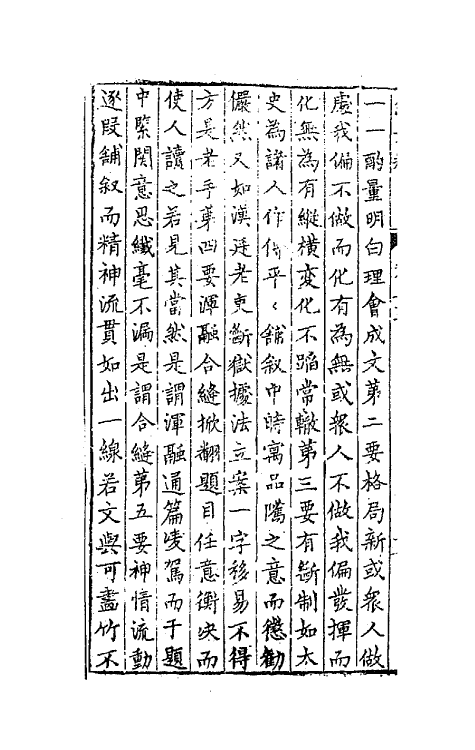 一一酌量明白理會成文第二要格局新或衆人做
處我偏不做而化有為無或衆人不做我偏發揮而
化無為有縱横変化不蹈常轍第三要有斷制如太
史為諸人作傳平〻舖叙中時寓品隲之意而懲勸
儼然又如漢廷老吏斷獄據法立案一字移易不得
方是老手第四要渾融合縫掀翻題目任意衡决而
使人讀之若見其當然是謂渾融通篇凌駕而于題
中緊関意思纖毫不漏是謂合縫第五要神情流動
逐段舖叙而精神流貫如出一線若文與可畫竹不